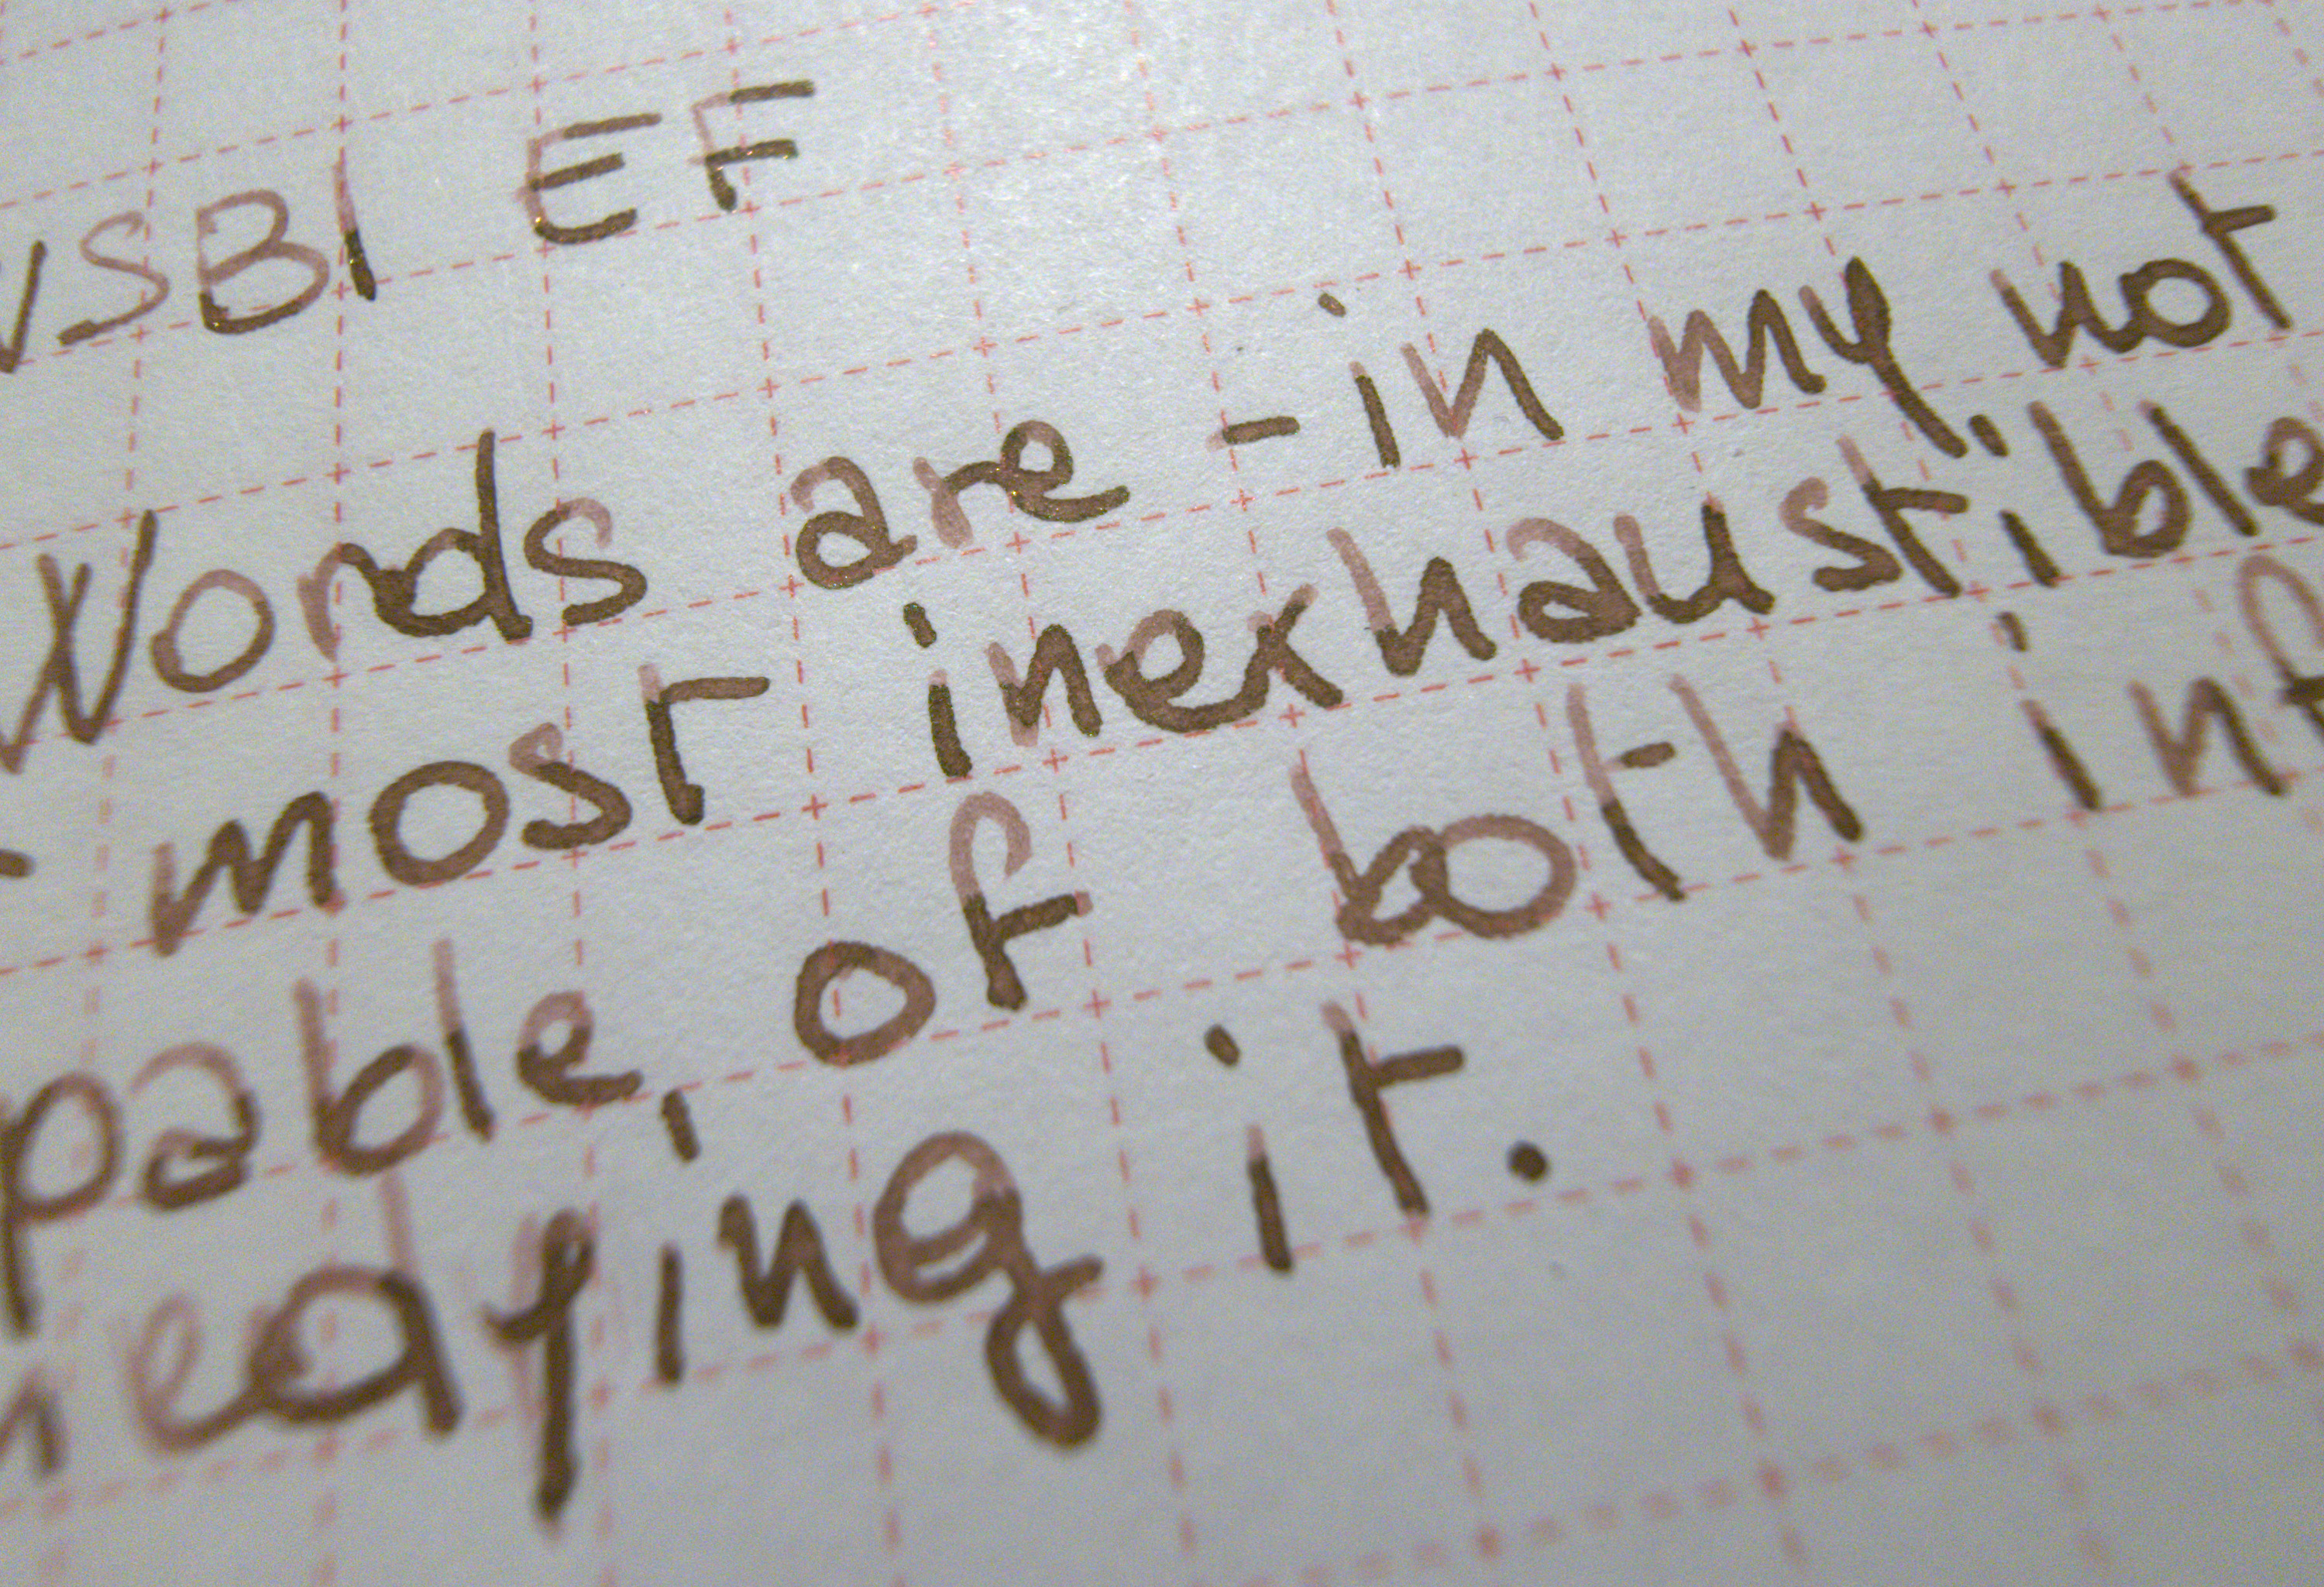 VSBI EF
Words are - in my not
most inexhaustible
pable, of both inf
medying it.